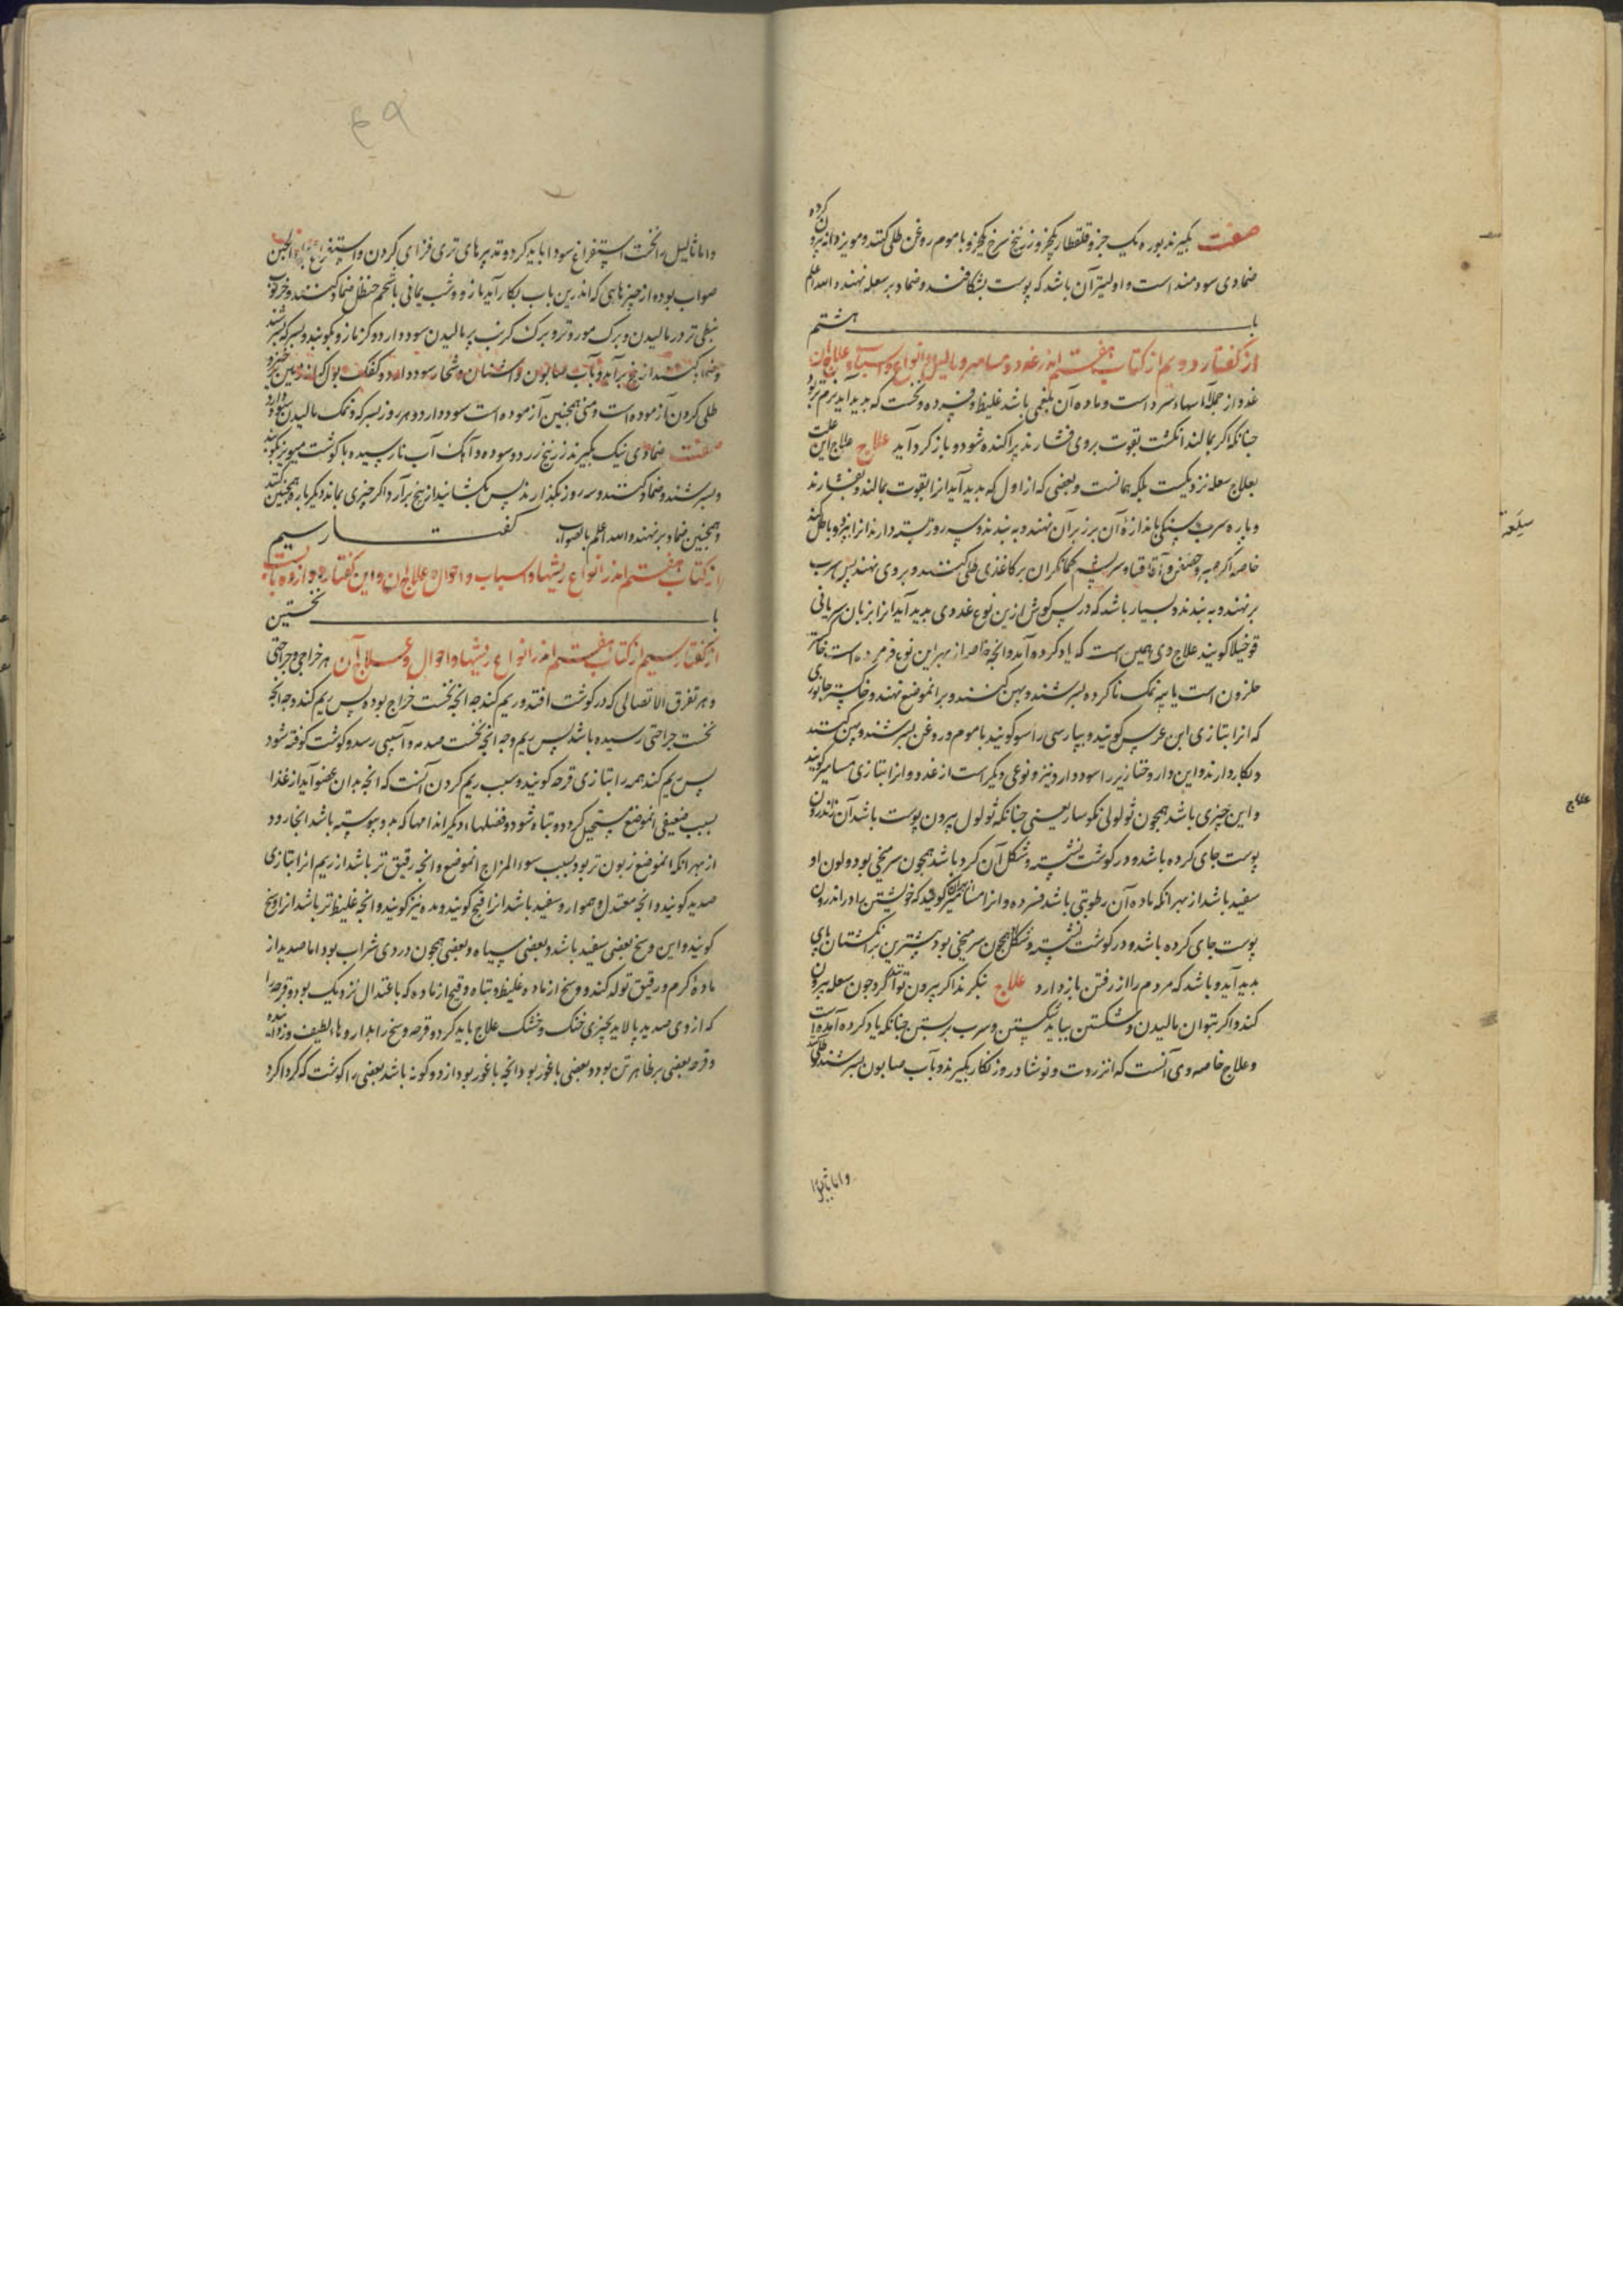 کرده
صفت بکیرند بوره یک جزو قلقطار یکجزو زرنیخ سرخ یکجزو با موم روغن طلی کنند و مویز دانه بیرون
ضمادی سودمند است و اولیتر آن باشد که پوست بشکافند و ضماد بر سعله نهند و الله اعلم
باب هشتم
از کفتار دویم از کتاب هفتم اندر غدد و مسامیر و ثالیل و انواع و اسباب و علاج آن
غدد از جملۀ آماسهاء سرد است و ماده آن بلغمی باشد غلیظ و فسرده و نخست که بدید آید نرم تر بود
جنانکه اکر بمالند انکشت بقوت بر وی فشارند پراکنده شود و باز کرد آید علاج علاج این علت
بعلاج سعله نزدیکست بلکه همانست و بعضی که از اول که بدید آید انرا بقوت بمالند و بفشارند
و پاره سرب سنکی باندازه آن بر زبر آن نهند و به بندند و سه روز بسته دارند انرا ببرد و باطل کند
خاصه اکر صبر و حضض و اقاقیا و سریشم کمانکران بر کاغذی طلی کنند و بر وی نهند پس سرب
برنهند و به بندند و بسیار باشد که در پس کوش ازین نوع غددی بدید آید انرا بزبان سریانی
فوخیلا کویند علاج وی همین است که یاد کرده آمد و انجه خاصه از بهر این نوع فرموده است خاکستر
حلزون است با پیه نمک ناکرده بسرشند و پهن کنند و بر انموضع نهند و خاکستر جانوری
که انرا بتازی ابن عرس کویند و بپارسی راسو کویند با موم و روغن بسرشند و پهن کنند
و بکار دارند و این دارو خنازیر را سود دارد و نیز و نوعی دیکر است از غدد و انرا بتازی مسامیر کویند
و این چیزی باشد همچون ثولولی نکوسار یعنی جنانکه ثولول بیرون پوست باشد آن اندرون
پوست جای کرده باشد و در کوشت نشسته و شکل آن کرد باشد همچون سر میخی بود و لون او
سفید باشد از بهر انکه ماده آن رطوبتی باشد فسرده و انرا مسامیر کویند که خویشتن را در اندرون
پوست جای کرده باشد و در کوشت نشسته و شکل همچون سر میخی بود و بیشترین بر انکشتان پای
بدید آید و باشد که مردم را از رفتن باز دارد علاج بنکرند اکر بیرون توانند کرد جون سعله بیرون
کنند و اکر بتوان مالیدن و شکستن بباید شکستن و سرب بر بستن جنانکه یاد کرده آمده است
و علاج خاصه وی آنست که انزروت و نوشادر و زنکار بکیرند و بآب صابون بسرشند و طلی کنند
و اما ثالیل را
سلعه
علاج
۶۹
و اما ثالیل را نخست استفراغ سودا باید کرد و تدبیرهای تری فزای کردن و استفراغ بماء الجبن
صواب بود و از چیزهایی که اندرین باب بکار آید مازو و شب یمانی با شحم حنظل ضماد کنند و خرنوب
نبطی تر در مالیدن و برک مورد تر و برک کرنب بر مالیدن سود دارد و کزمازو بکوبند و بسرکه بسرشند
و ضماد کنند از بیخ برآید و بآب صابون و اشنان و شخار سود دارد و کفک بول کرازو
طلی کردن آزموده است و منی همچنین آزموده است سود دارد و هر روز بسرکه و نمک مالیدن سود دارد
صفت ضمادی نیک بکیرند زرنیخ زرد و سوده و آهک آب نارسیده با کوشت مویز بکوبند
و بسرشند و ضماد کنند و سه روز بکذارند پس بکشایند از بیخ برآرد اکر چیزی بماند دیکر بار همچنین کنند
و همچنین ضماد برنهند و الله اعلم بالصواب. کفتار سیم
از کتاب هفتم اندر انواع ریشها و اسباب و احوال و علاج آن و این کفتار دوازده بابست
باب نخستین
از کفتار سیم از کتاب هفتم اندر انواع ریشها و احوال و علاج آن هر خراجی و جراحتی
و هر تفرق الاتصالی که در کوشت افتد و ریم کند چه انجه نخست خراج بود و پس ریم کند و چه انجه
نخست جراحتی رسیده باشد پس ریم و چه انجه نخست صدمه و آسیبی رسد و کوشت کوفته شود
پس ریم کند همه را بتازی قرحه کویند و سبب ریم کردن آنست که انجه بدان عضو آید از غذا
بسبب ضعیفی انموضع مستحیل کردد و تباه شود و فضلهاء دیکر اندامها که بدو پیوسته باشد انجا رود
از بهر انکه انموضع زبون تر بود بسبب سوء المزاج انموضع و انجه رقیق تر باشد از ریم انرا بتازی
صدید کویند و انجه معتدل و هموار و سفید باشد انرا قیح کویند و مده نیز کویند و انجه غلیظ تر باشد انرا وسخ
کویند و این وسخ بعضی سفید باشد و بعضی سیاه و بعضی همچون دردی شراب بود اما صدید از
مادۀ کرم و رقیق تولد کند و وسخ از ماده غلیظ و تباه و قیح از ماده که باعتدال نزدیک بود و قرحه را
که از وی صدید پالاید بچیزی خنک و خشک علاج باید کرد و قرحه وسخ را بداروهاء لطیف و زداینده
و قرحه بعضی بر ظاهر تن بود و بعضی با غور بود و انجه با غور بود از دو کونه باشد بعضی را کوشت که کرداکرد